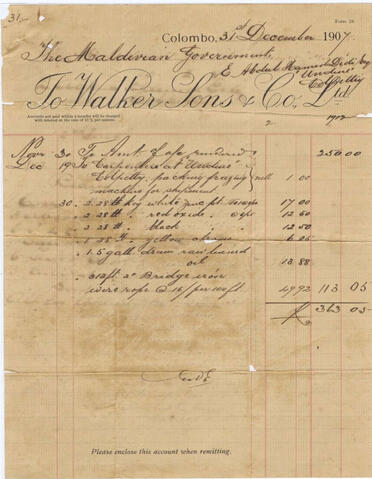 31.
Form 28
Colombo, 31st December 1907
The Maldivian Government
E. Abdul Hamid Didi Esq
"Undine"
Colpetty
To Walker Sons & Co., Ltd.
Accounts not paid within 3 months will be charged
with interest at the rate of 10% per annum.
190
Novr 30 To Amt. of a/c rendered 250.00
Dec 19 To Carpenters at "Undine"
Colpetty packing freezing
machine for shipment 1 00
30 2 28lb keg white zinc pt. 17 00
2 28lb " red oxide 12 50
2 28lb " black 12 50
1 28lb " yellow chrome 6 05
1 5 gall: drum raw linseed
oil 13.88
312 ft. 2" Bridge
wire rope @ 16/ per 100 ft. 49.92 113 05
R 363 05
E & O E
Please enclose this account when remitting.